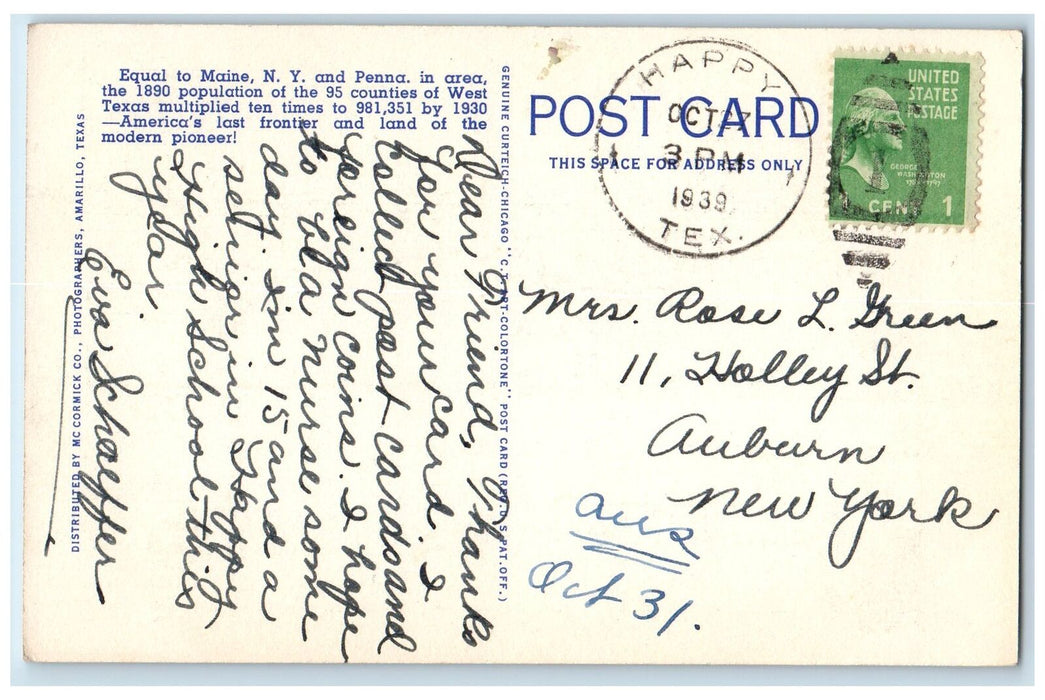 Equal to Maine, N. Y. and Penna. in area,
the 1890 population of the 95 counties of West
Texas multiplied ten times to 981,351 by 1930
—America's last frontier and land of the
modern pioneer!
DISTRIBUTED BY MCCORMICK CO., PHOTOGRAPHERS, AMARILLO, TEXAS
Dear Friend, Thanks
for your card. I
collect post cards and
foreign coins. I hope
to be a nurse some
day. I'm 15 and a
senior in Happy
High School this
year.
Eva Schaeffer
GENUINE CURTEICH-CHICAGO "C.T. ART-COLORTONE" POST CARD (REG. U.S. PAT. OFF.)
POST CARD
THIS SPACE FOR ADDRESS ONLY
HAPPY
OCT 7
3 PM
1939
TEX.
UNITED
STATES
POSTAGE
GEORGE
WASHINGTON
CENT 1
Mrs. Rose L. Green
11, Holley St.
Auburn
New York
ans
Oct 31.